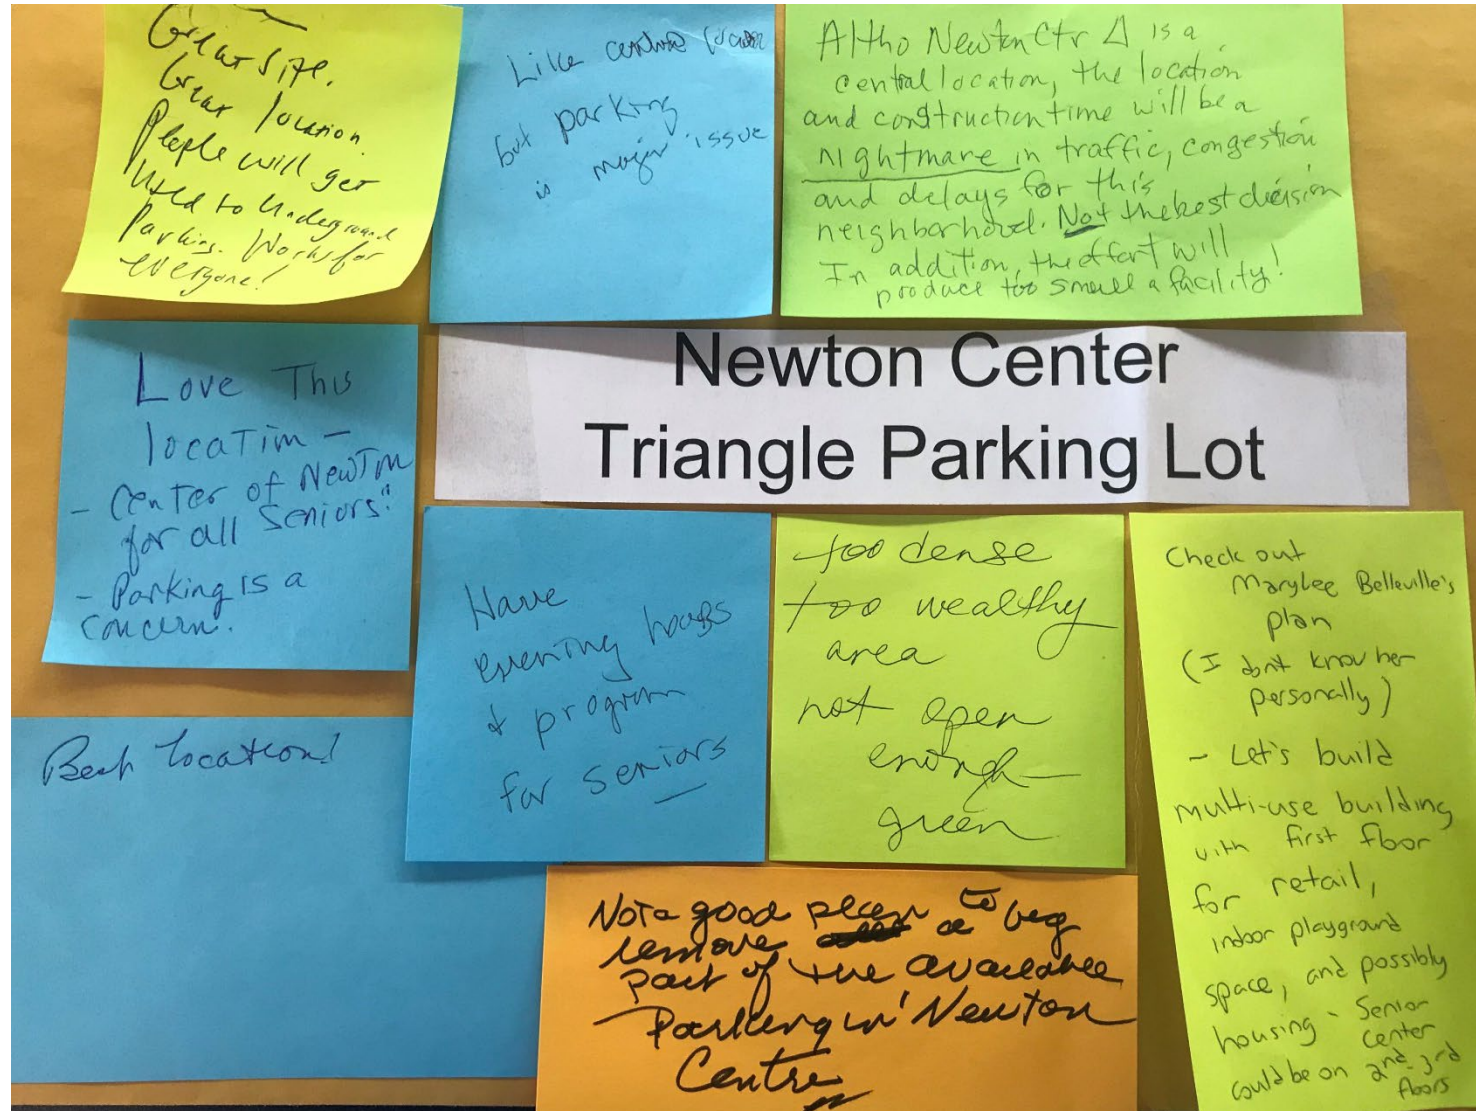 Great site.
Great location.
People will get
used to Underground
Parking. Works for
everyone!
Like central
but parking
is major issue
Altho Newton Ctr Δ is a
central location, the location
and construction time will be a
nightmare in traffic, congestion
and delays for this
neighborhood. Not the best decision
In addition, the effort will
produce too small a facility!
Newton Center
Triangle Parking Lot
Love This
location –
- Center of Newton
for all Seniors"
- Parking is a
concern.
Have
evening hours
& program
for seniors
too dense
too wealthy
area
not open
enough –
green
Check out
Marylee Belleville's
plan
(I don't know her
personally)
- Let's build
multi-use building
with first floor
for retail,
indoor playground
space, and possibly
housing - Senior
center
could be on 2nd-3rd
floors
Best location!
Not a good plan to
remove a big
part of the available
Parking in Newton
Centre